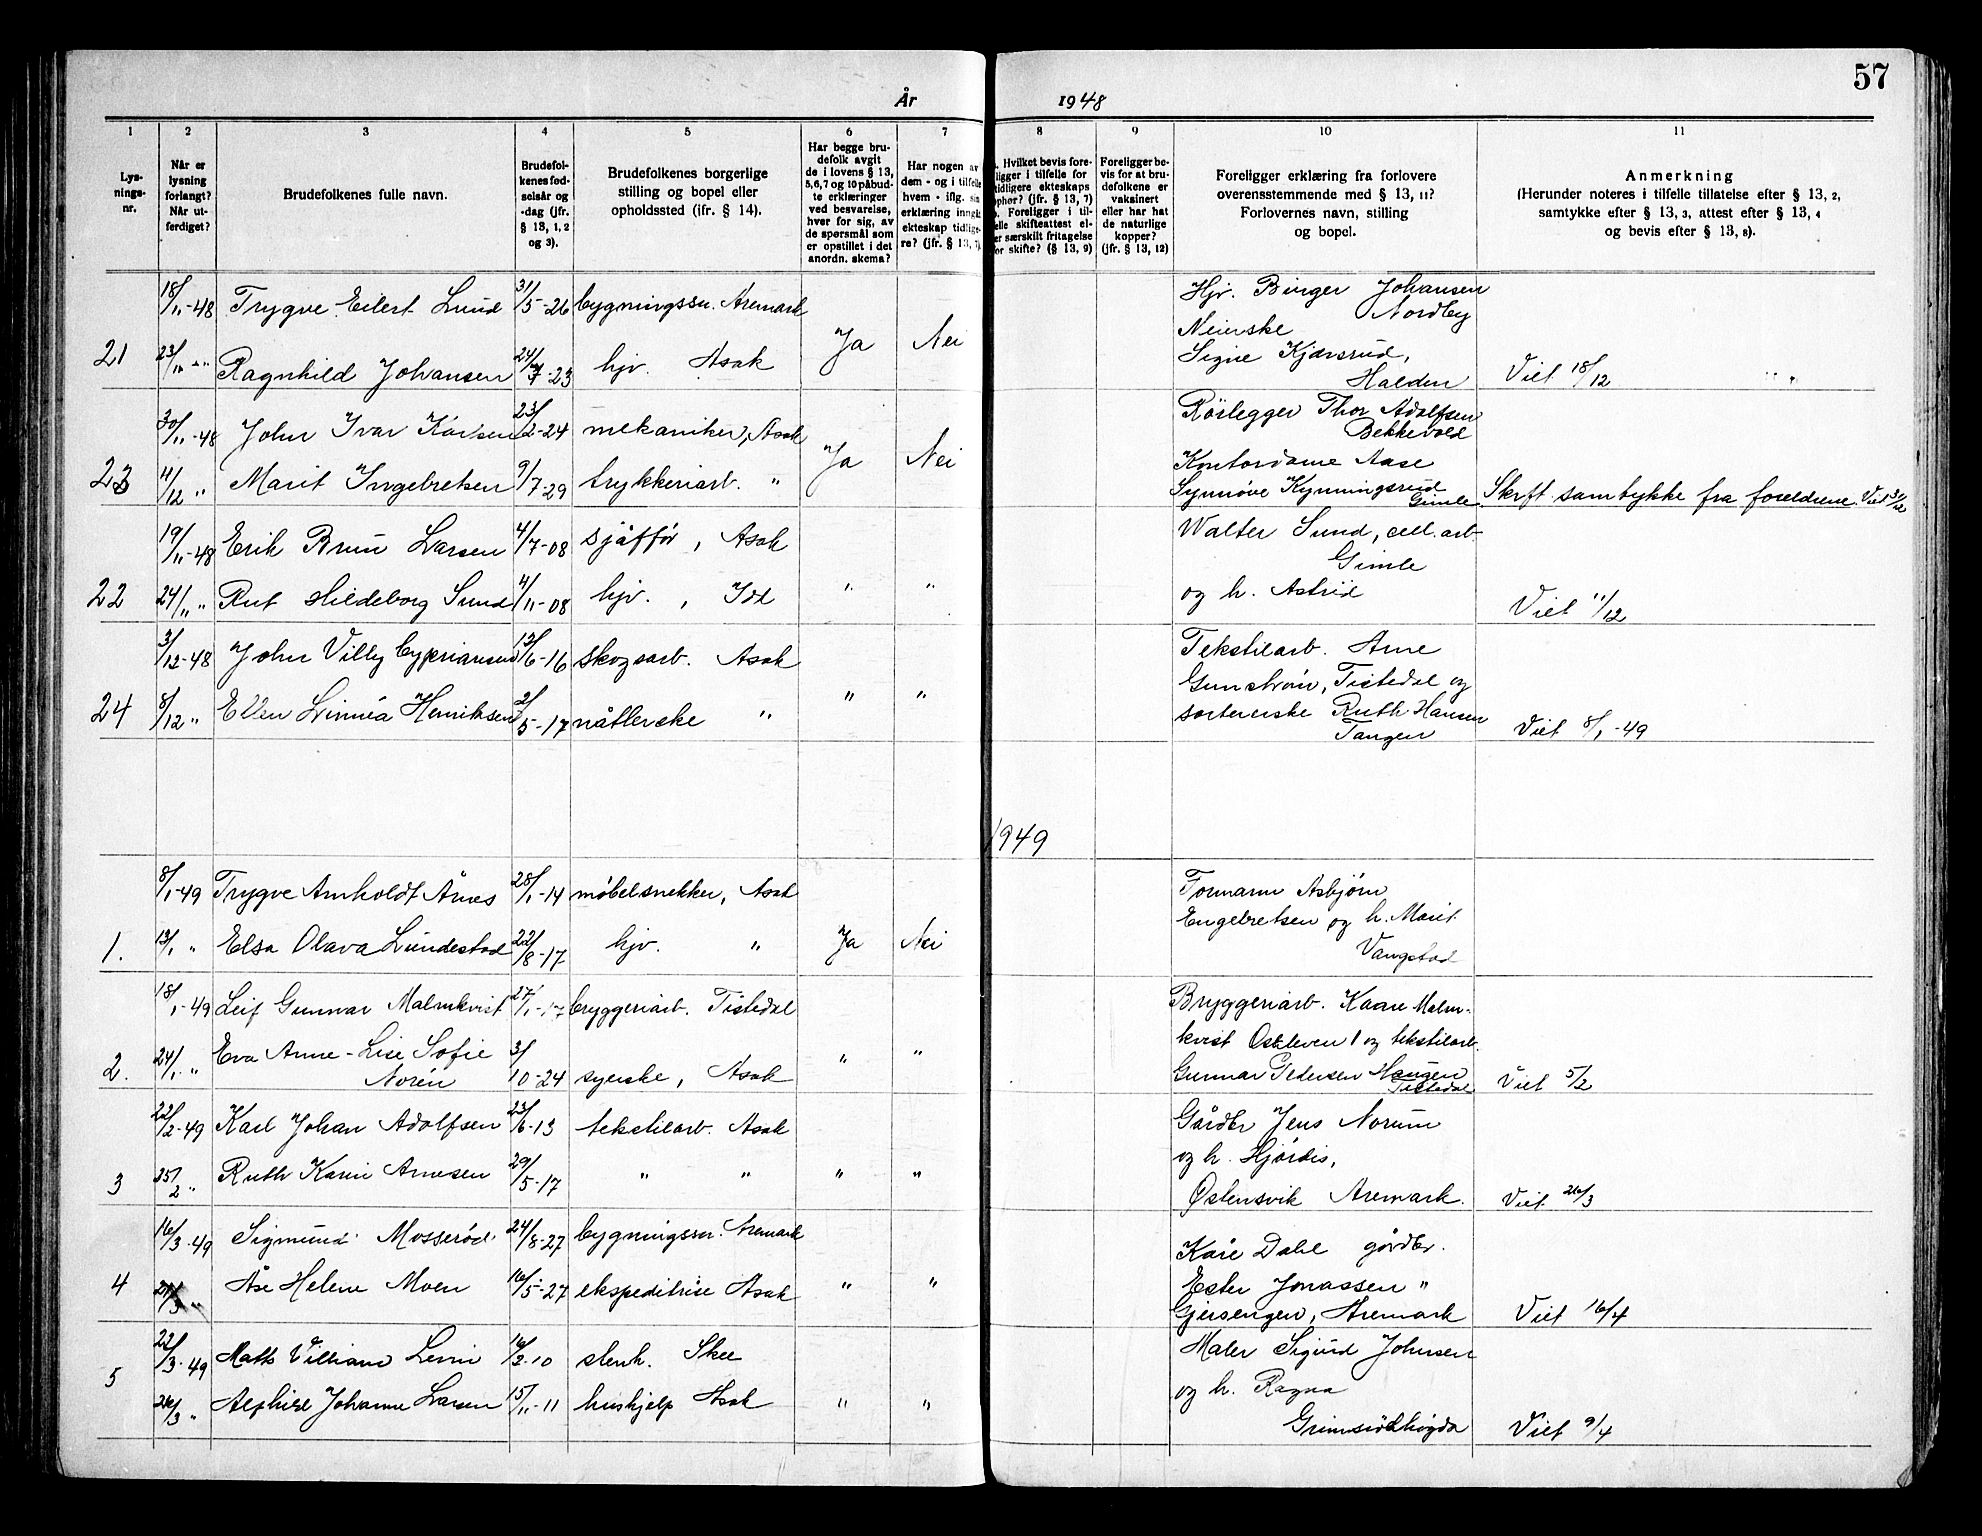 57
År 1948
1 2 3 4 5 6 7 8 9 10 11
Lys-
nings-
nr.
Når er
lysning
forlangt?
Når ut-
ferdiget?
Brudefolkenes fulle navn.
Brudefol-
kenes fød-
selsår og
-dag (jfr.
§ 13, 1, 2
og 3).
Brudefolkenes borgerlige
stilling og bopel eller
opholdssted (ifr. § 14).
Har begge bru-
defolk avgit
de i lovens § 13,
5,6,7 og 10 påbud-
te erklæringer
ved besvarelse,
hver for sig, av
de spørsmål som
er opstillet i det
anordn. skema?
Har nogen av
dem - og i tilfelle
hvem - iflg. sin
erklæring inngått
ekteskap tidlige-
re? (jfr. § 13, 7)
. Hvilket bevis fore-
ligger i tilfelle for
tidligere ekteskaps
ophør? (jfr. § 13, 7)
. Foreligger i til-
felle skifteattest el-
er særskilt fritagelse
for skifte? (§ 13, 9)
Foreligger be-
vis for at bru-
defolkene er
vaksinert
eller har hat
de naturlige
kopper?
(jfr. § 13, 12)
Foreligger erklæring fra forlovere
overensstemmende med § 13, 11?
Forlovernes navn, stilling
og bopel.
Anmerkning
(Herunder noteres i tilfelle tillatelse efter § 13, 2,
samtykke efter § 13, 3, attest efter § 13, 4
og bevis efter § 13, 8).
18/11-48 Trygve Eilert Lund 31/5-26 bygningssn. Aremark
21 23/11 -"- Ragnhild Johansen 24/7-23 hjv. Asak Ja Nei
Hjv. Birger Johansen
Nordby
Neierske
Signe Kjærsrud,
Halden Viet 18/12
30/11-48 John Ivar Karlsen 23/2-24 mekaniker, Asak
23 4/12 " Marit Ingebretsen 9/7-29 trykkeriarb. " Ja Nei
Rørlegger Thor Adolfsen
Bekkevold
Kontordame Aase
Synnøve Kynningsrud
Gimle Skrft. samtykke fra foreldrene. Viet 31/12
19/11-48 Erik Bruu Larsen 4/7-08 sjåfför, Asak
22 24/11 " Rut Hildeborg Sund 4/11-08 hjv., Idd " "
Walter Sund, cell. arb.
Gimle
og h. Astrid Viet 11/12
3/12-48 John Villy Cypriansen 13/6-16 skogsarb. Asak
24 8/12 " Ellen Linnéa Henriksen 2/5-17 nåtlerske " " "
Tekstilarb. Arne
Gunström, Tistedal og
sortererske Ruth Hansen
Tangen Viet 8/1-49
1949
8/1-49 Trygve Arnholdt Årnes 28/1-14 møbelsnekker, Asak
1. 13/1 " Elsa Olava Lundestad 22/8-17 hjv. " Ja Nei
Formann Asbjørn
Engebretsen og h. Marit
Vangstad
18/1-49 Leif Gunnar Malmkvist 27/1-17 bryggeriarb. Tistedal
2. 24/1 " Eva Anne-Lise Sofie
Norén 3/10-24 syerske, Asak " "
Bryggeriarb. Kaare Malm-
kvist Oskleven 1 og tekstilarb.
Gunnar Pedersen Haugen
Tistedal Viet 5/2
22/2-49 Karl Johan Adolfsen 23/6-13 tekstilarb. Asak
3 25/2 " Ruth Karin Arnesen 29/5-17 " " " "
Gårdbr Jens Norum
og h. Hjördis,
Østensvik Aremark. Viet 26/3
16/3-49 Sigmund Mosserød 24/8-27 bygningssn. Aremark
4 21/3 " Åse Helene Moen 16/5-27 ekspeditrise Asak " "
Kåre Dahl gårdbr.
Ester Jonassen "
Gjersengen, Aremark Viet 16/4
22/3-49 Matts Villiand Levin 16/2-10 stenh. Skee
5 26/3 " Alphild Johanne Larsen 15/11-11 hushjelp Asak " "
Maler Sigurd Johnsen
og h. Ragna
Grimsrødhøgda Viet 9/4